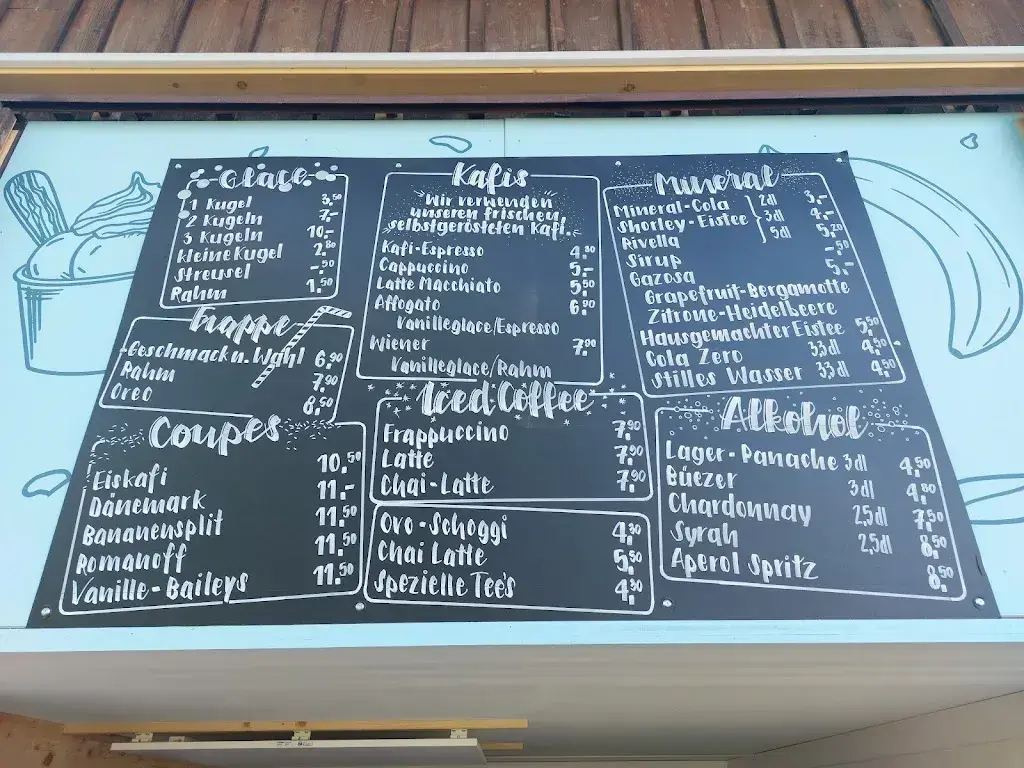 Glace
1 Kugel 3.50
2 Kugeln 7.-
3 Kugeln 10.-
kleine Kugel 2.80
Streusel -.50
Rahm 1.50
Frappe
Geschmack n. Wahl 6.90
Rahm 7.90
Oreo 8.50
Coupes
Eiskafi 10.50
Dänemark 11.-
Bananensplit 11.50
Romanoff 11.50
Vanille-Baileys 11.50
Kafis
Wir verwenden
unseren frischen,
selbstgerösteten Kafi.
Kafi-Espresso 4.80
Cappuccino 5.-
Latte Macchiato 5.50
Affogato 6.90
Vanilleglace/Espresso
Wiener 7.90
Vanilleglace/Rahm
Iced Coffee
Frappuccino 7.90
Latte 7.90
Chai-Latte 7.90
Ovo-Schoggi 4.30
Chai Latte 5.50
Spezielle Tee's 4.30
Mineral
Mineral-Cola 2dl 3.-
Shorley-Eistee 3dl 4.-
Rivella 5dl 5.20
Sirup -.50
Gazosa 5.-
Grapefruit-Bergamotte
Zitrone-Heidelbeere
Hausgemachter Eistee 5.50
Cola Zero 3,3dl 4.50
Stilles Wasser 3,3dl 4.50
Alkohol
Lager-Panache 3dl 4.50
Büezer 3dl 4.80
Chardonnay 2,5dl 7.50
Syrah 2,5dl 8.50
Aperol Spritz 8.50